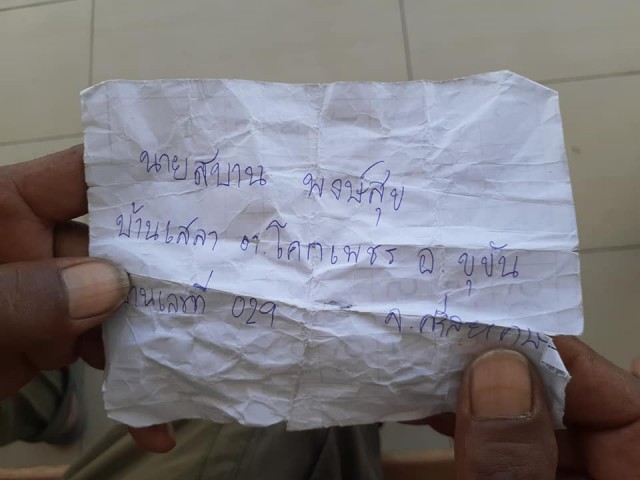 นายสบาน พงษ์สุข
บ้านเสลา ต.โคกเพชร อ ขุขัน
บ้านเลขที่ 029 จ.ศรีสะเกษ